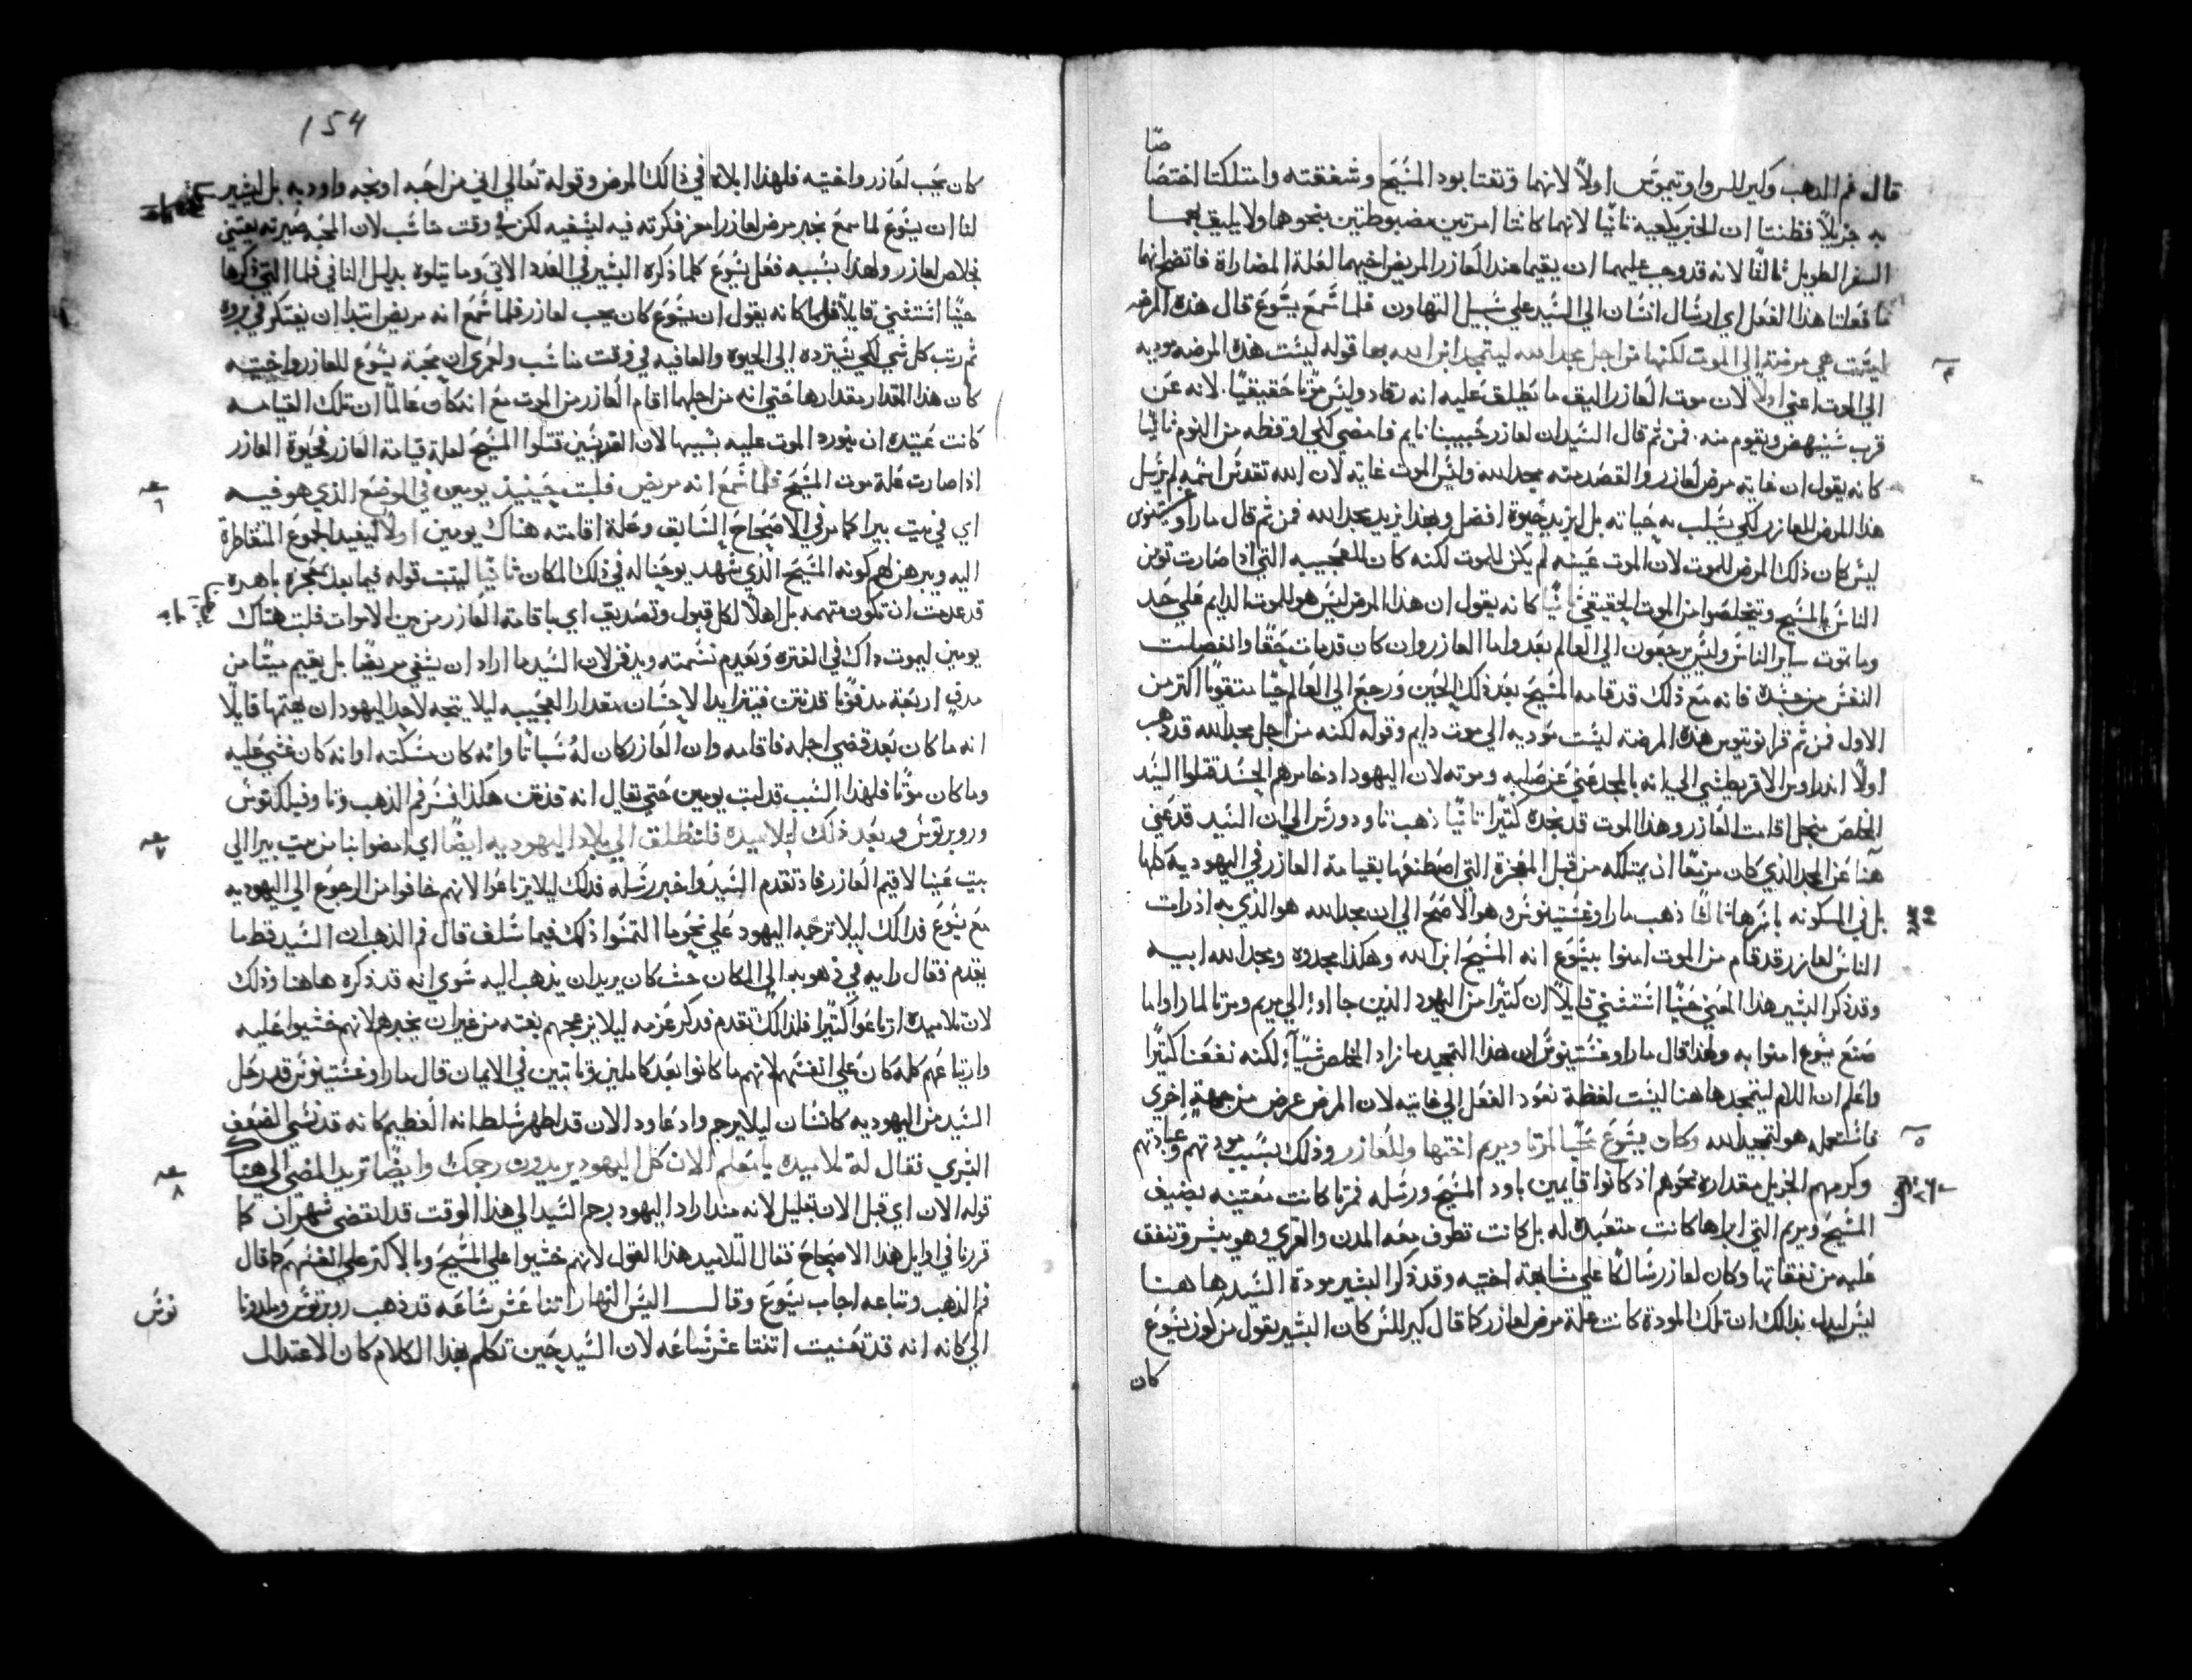 صا
قال فم الذهب وكيرللس واوتيموس اولاً لانهما وثقتا بود المسيح وشفقته وامتلكتا اختصا
به جزيلاً فظنتا ان الخبر يكفيه ثانياً لانهما كانتا امرتين مضبوطتين بنحوهما ولا يليق بهما
السفر الطويل ثالثا لانه قد وجب عليهما ان يقيما عند العازر المريض اخيهما لعلة المضاراة فاتضح انهما
ما فعلتا هذا الفعل اي ارسال انسان الي السيد علي سبيل التهاون فلما سمع يسوع قال هذه المرضه
ليست هي مرضة الي الموت لكنها من اجل مجد الله ليتمجد ابن الله بها قوله ليست هذه المرضه موديه
الي الموت اعني اولاً لان موت العازر اليق ما يطلق عليه انه رقاد وليس موتا حقيقيا. لانه عن
قرب سينهض ويقوم منه. فمن ثم قال السيد ان لعازر حبيبنا نايم فامضي لكي اوقظه من النوم ثانيا
كانه يقول ان غاية مرض لعازر والقصد منه مجد الله وليس الموت غايته لان الله تقدس اسمه لم يرسل
هذا المرض للعازر لكي يسلب به حياته بل ليزيد حيوة افضل وبهذا يزيد مجد الله فمن ثم قال ماراوغستينوس
ليس كان ذلك المرض للموت لان الموت عينه لم يكن للموت لكنه كان للعجيبه التي اذا صارت تومن
الناس بالمسيح ويتخلصوا من الموت الحقيقي ثانيا كانه يقول ان هذا المرض ليس هو للموت الدايم علي حد
وما تموت ساير الناس وليس يرجعون الي العالم بعد واما العازر وان كان قد مات حقا وانفصلت
النفس من جسده فانه مع ذلك قد قامه المسيح بعد ذلك الحين ورجع الي العالم حيا متقوما اكثر من
الاول فمن ثم قرا نونوس هذه المرضه ليست موديه الي موت دايم وقوله لكنه من اجل مجد الله قد ذهب
اولاً اندراوس الاقريطشي الي انه بالمجد عني عن صلبه وموته لان اليهود اذ خامرهم الحسد قتلوا السيد
المخلص من اجل اقامت العازر وهذا الموت قد مجده كثيرا ثانيا ذهب ثاودورس الي ان السيد قد عني
هنا عن المجد الذي كان مزمعا ان يمتلكه من قبل المعجزة التي اصطنعها بقيامة العازر في اليهودية كلها
بل في المسكونه باسرها ثالثا ذهب ماراوغستينوس وهو الاصح الي ان مجد الله هو الذي به اذ رات
الناس لعازر قد قام من الموت امنوا بيسوع انه المسيح ابن الله وهكذا مجدوه ومجد الله ابيه
وقد ذكر البشير هذا المعني حينا استثني قايلاً ان كثيرا من اليهود الذين جااوا الي مريم ومرتا لما راوا ما
صنع يسوع امنوا به ولهذا قال ماراوغستينوس ان هذا التمجيد ما زاد المخلص شيآ لكنه نفعنا كثيرا
واعلم ان اللام ليتمجد هاهنا ليست لفظة تعود الفعل الي غايته لان المرض عرض من جهة اخري
فاستعمله هو لتمجيد الله وكان يسوع محبا لمرتا ومريم اختها وللعازر وذلك بسبب مودتهم وعبادتهم
وكرمهم الجزيل مقداره نحوهم اذ كانوا قايمين باود المسيح ورسله فمرتا كانت معتنيه بضيف
المسيح ومريم التي ابراها كانت متعبدة له بل كانت تطوف معه المدن والقري وهو يبشر وتنفق
عليه من نفقاتها وكان لعازر سالكا علي مشابهة اختيه وقد ذكر البشير مودة السيد هاهنا
ليس ليدل بذالك ان تلك المودة كانت علة مرض لعازر كما قال كيرللس كان البشير يقول من كون يسوع
كان
154
كان يحب لعازر واختيه فلهذا ابلاه في ذالك المرض وقوله تعالي اني من احبه اوبخه واودبه بل ليشير
لنا ان يسوع لما سمع بخبر مرض لعازر امعن فكرته فيه ليشفيه لكن في وقت مناسب لان المحبه صيرته يعتني
بخلاص لعازر ولهذا بسببه فعل يسوع كلما ذكره البشير في العدد الاتي وما يتلوه بدليل الفا في فلما التي ذكرها
حينا استثني قايلاً فلما كانه يقول ان يسوع كان يحب لعازر فلما سمع انه مريض ابتدا ان يفتكر في بروه
ثم رتب كل شي لكي يسترده الي الحيوة والعافيه في وقت مناسب ولعمري ان محبة يسوع للعازر واختيه
كان هذا المقدار مقدارها حتي انه من اجلهما اقام العازر من الموت مع انه كان عالما ان تلك القيامه
كانت عتيده ان تورد الموت عليه بسببها لان الفريسيين قتلوا المسيح لعلة قيامة العازر فحيوة العازر
اذا صارت علة موت المسيح فلما سمع انه مريض فلبث حينيذ يومين في الموضع الذي هو فيه
اي في بيت بيرا كما مر في الاصحاح السابق وعلة اقامته هناك يومين اولاً ليفيد الجموع المتقاطرة
اليه ويبرهن لهم كونه المسيح الذي شهد يوحنا له في ذلك المكان ثانيا ليثبت قوله فيما بعد بمعجزة باهرة
قد عدمت ان تكون متهمه بل اهلاً لكل قبول وتصديق اي باقامة العازر من بين الاموات فلبث هناك
يومين ليموت ذاك في الفتره ويعدم نسمته ويدفن لان السيد ما اراد ان يشفي مريضا بل يقيم ميتا من
مدفن اربعة مدفونا قد نتن فيتزايد الاحسان بمقدار العجيبه ليلا يتجه لاحد اليهود ان يتهمها قايلاً
انه ما كان بعد قضي اجله فاقامه وان العازر كان له سباتا وانه كان سكته او انه كان غشي عليه
وما كان موتا فلهذا السبب قد لبث يومين حتي يقال انه قد نتن هكذا فسر فم الذهب وثاوفيلكتوس
وروبرتوس وبعد ذلك لتلاميده فلننطلق الي بلاد اليهوديه ايضا اي امضوا بنا من بيت بيرا الي
بيت عنيا لاقيم العازر فاذ تقدم السيد واخبر رسله فدلك ليلا يرتاعوا لانهم خافوا من الرجوع الي اليهوديه
مع يسوع فدالك ليلا ترجمه اليهود علي نحو ما التمسوا ذلك فيما سلف قال فم الذهب ان السيد قط ما
يقدم فقال رايه في ذهوبه الي المكان حيث كان يريد ان يذهب اليه سوي انه قد ذكره هاهنا وذلك
لان تلاميده ارتاعوا كثيرا فلذالك تقدم فدكر عزمه ليلا يزعجهم بغته من غير ان يخبرهم لانهم خشيوا عليه
وارتياعهم كله كان علي انفسهم لانهم ما كانوا بعد كاملين وثابتين في الايمان قال ماراوغستينوس قد رحل
السيد من اليهوديه كانسان ليلا يرجم واذ عاود الان قد اظهر سلطانه العظيم كانه قد نسي الضعف
البشري فقال له تلاميده يا معلم الان كان اليهود يريدون رجمك وايضا تريد المضي الي هناك
قوله الان اي قبل الان بقليل لانه منذ اراد اليهود برجم السيد الي هذا الوقت قد انقضي شهران كما
قررنا في اوايل هذا الاصحاح فقال التلاميد هذا القول لانهم خشيوا علي المسيح وبالاكثر علي انفسهم كما قال
فم الذهب وتباعه اجاب يسوع وقال اليس النهار اثنا عشر ساعه قد ذهب روبرتوس وملدونا
توس
الي كانه انه قد تعنيت اثنتا عشر ساعه لان السيد حين تكلم بهذا الكلام كان الاعتدال